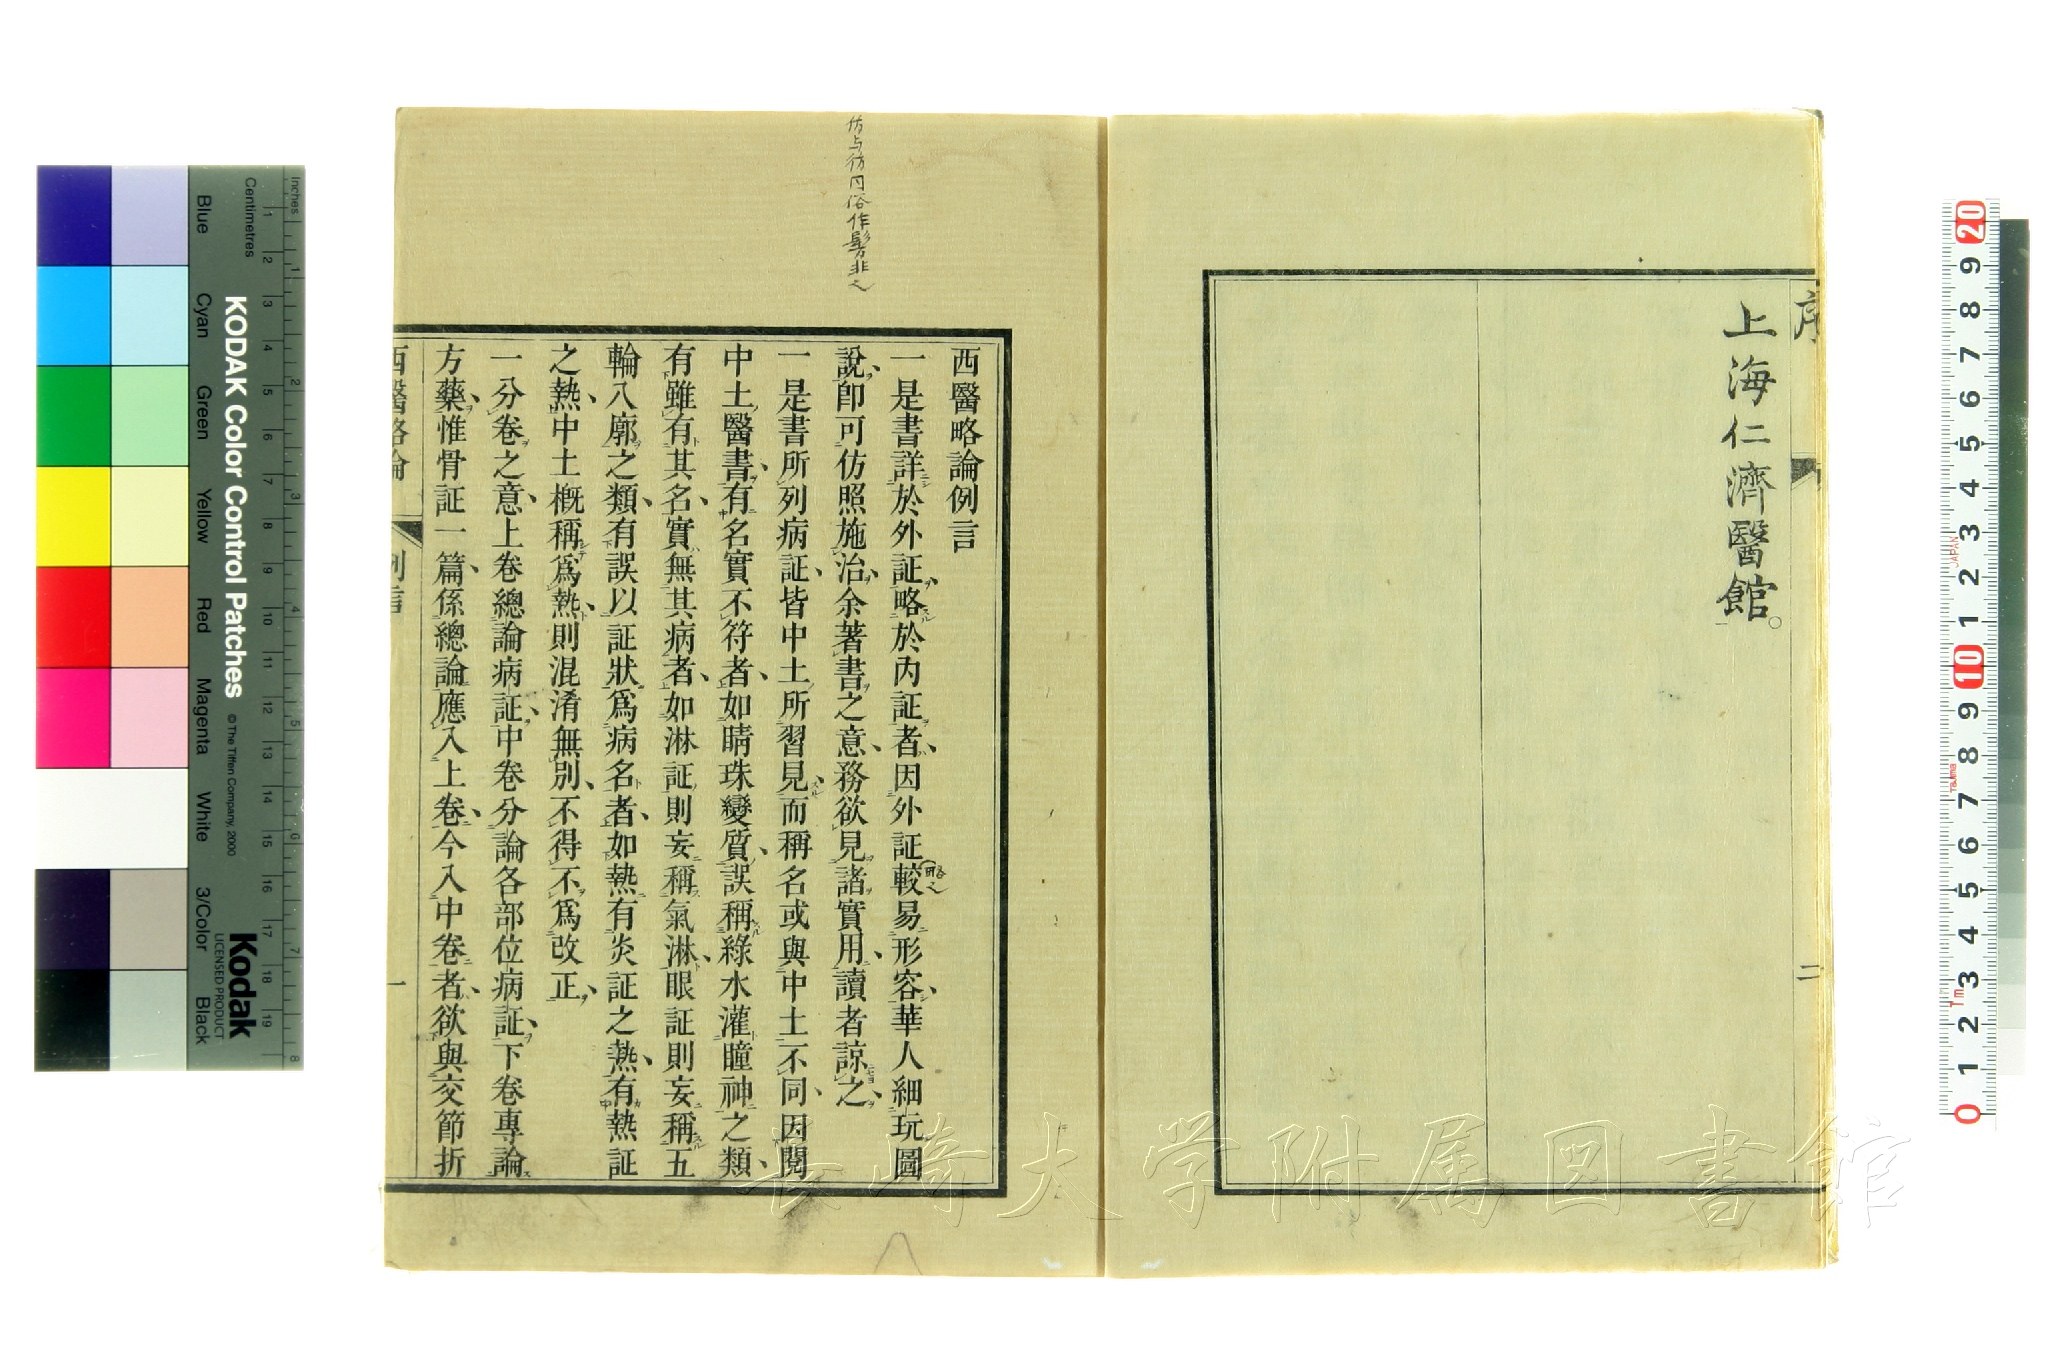 序
上海仁濟醫館。
二
仿与彷同俗作髣非也
西醫略論例言
一是書詳於外証略於內証者因外証較易形容華人細玩圖
說卽可仿照施治余著書之意務欲見諸實用讀者諒之
一是書所列病証皆中土所習見而稱名或與中土不同因閱
中土醫書有名實不符者如睛珠變質誤稱綠水灌瞳神之類
有雖有其名實無其病者如淋証則妄稱氣淋眼証則妄稱五
輪八廓之類有誤以証狀爲病名者如熱有炎証之熱有熱証
之熱中土槪稱爲熱則混淆無別不得不爲改正
一分卷之意上卷總論病証中卷分論各部位病証下卷專論
方藥惟骨証一篇係總論應入上卷今入中卷者欲與交節折
西醫略論
例言
一
長崎大学附属図書館
KODAK Color Control Patches
© The Tiffen Company, 2000
Kodak
LICENSED PRODUCT
Inches
Centimetres
Blue
Cyan
Green
Yellow
Red
Magenta
White
3/Color
Black
JAPAN